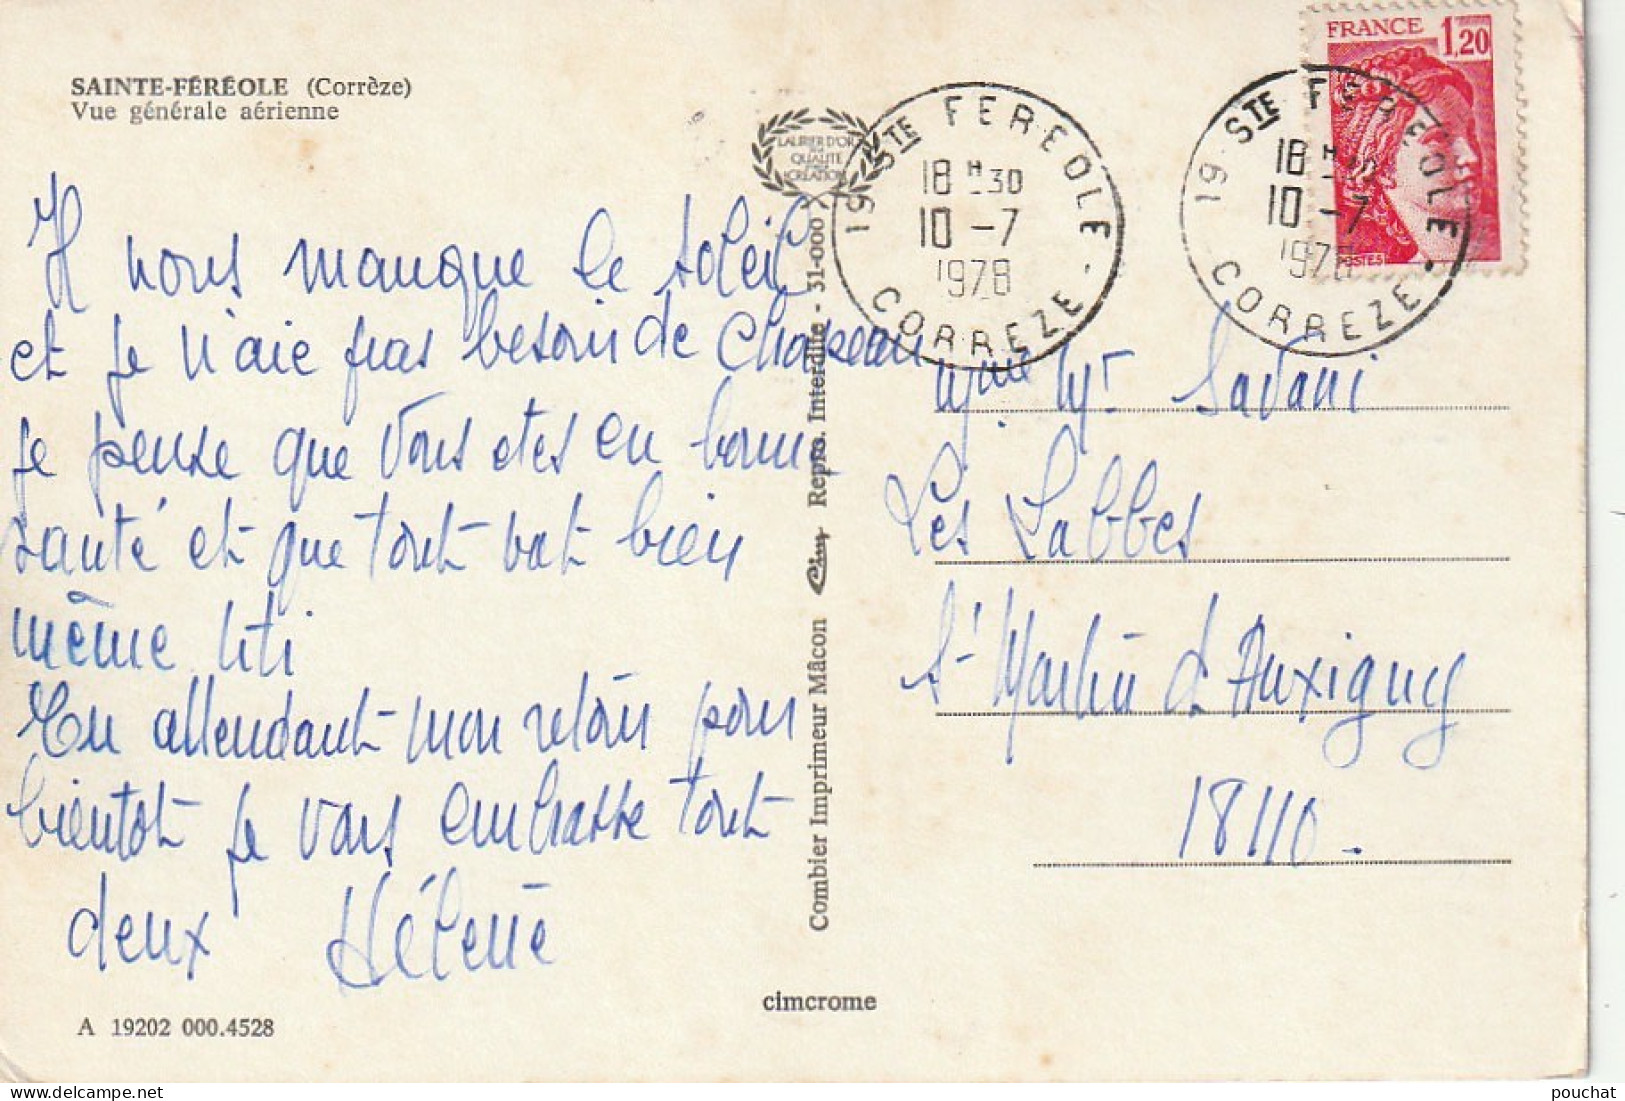 SAINTE-FÉRÉOLE (Corrèze)
Vue générale aérienne
Il nous manque le soleil
et je n'aie pas besoin de chapeau
je pense que vous etes en bonne
santé et que tout vat bien
même titi
En attendant mon retour pour
bientot je vous embrasse tout
deux Hélène
A 19202 000.4528
LAURIER D'OR
QUALITÉ
CRÉATION
Combier Imprimeur Mâcon Cim Repro. Interdite - 31-000
cimcrome
FRANCE 1,20
POSTES
19 STE FEREOLE
18 H 30
10 -7
1978
CORREZE
19 STE FEREOLE
18 H 30
10 -7
1978
CORREZE
Mme Mr Savani
Les Labbes
St Martin d'Auxigny
18110.
pouchat